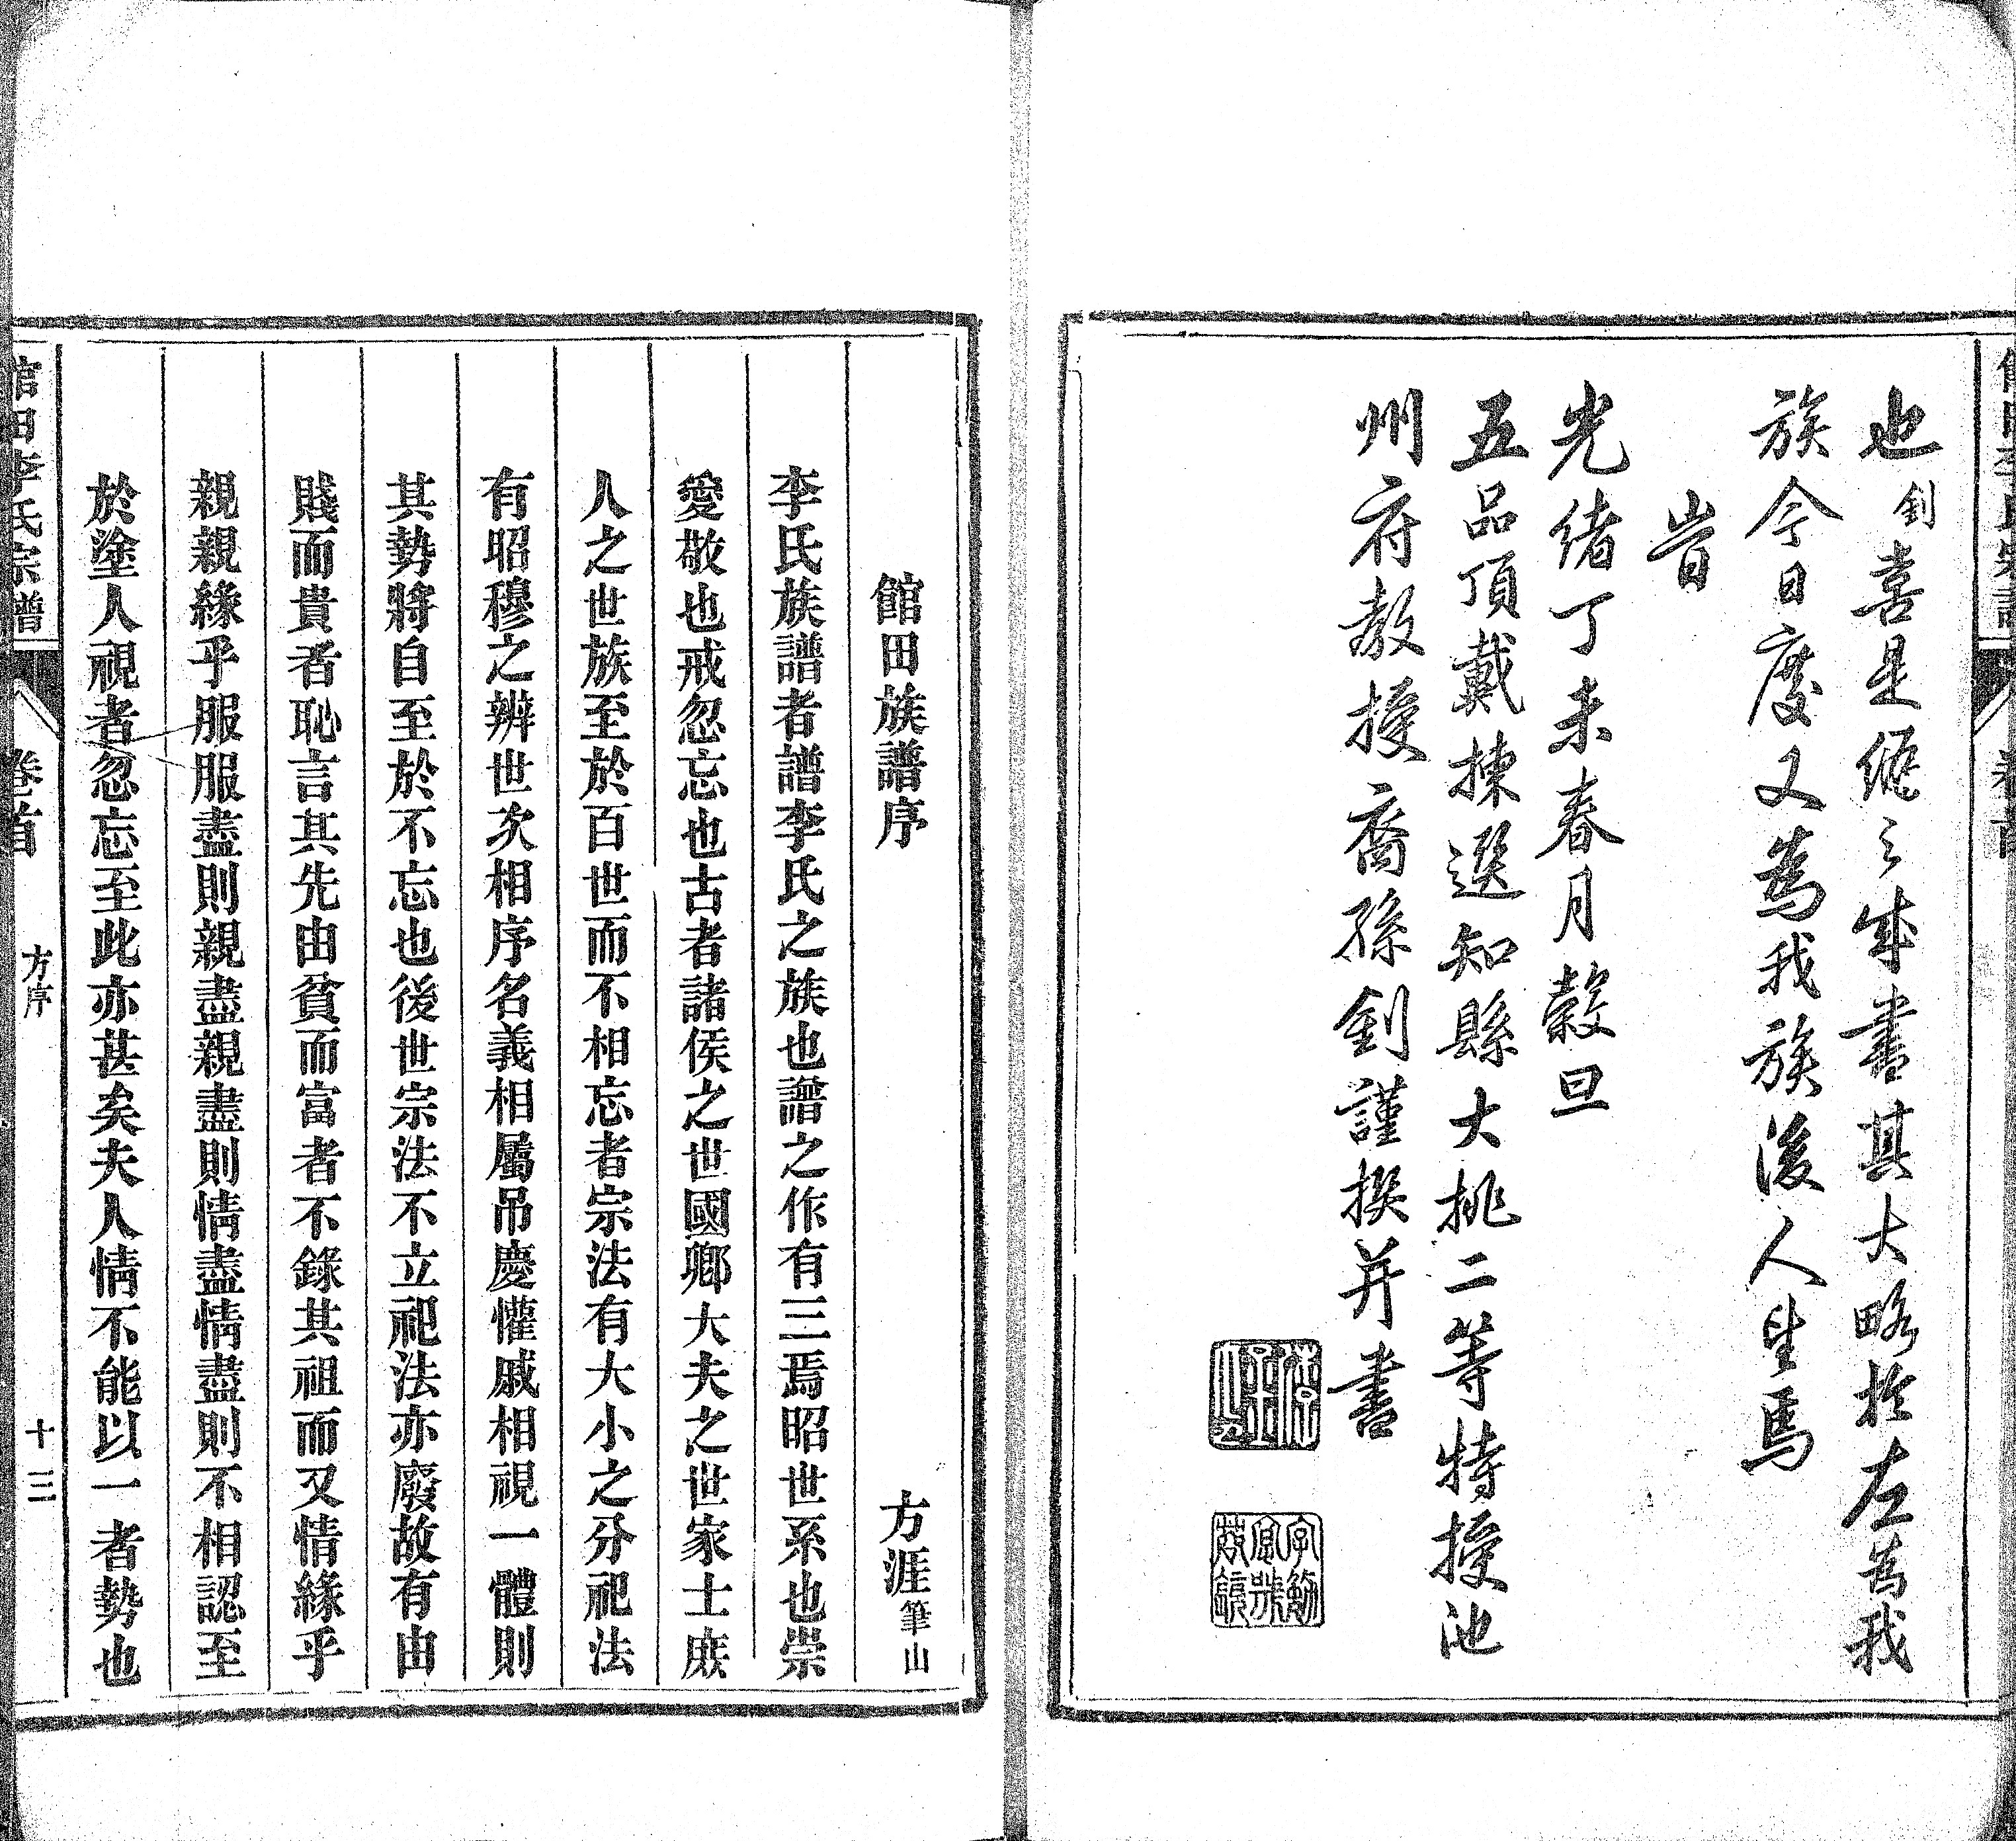 也釗喜是編之成書其大略於左為我
族今日慶又為我族後人望焉
旹
光緒丁未春月穀旦
五品頂戴揀選知縣大挑二等特授池
州府教授裔孫釗謹撰并書
館田族譜序 方涯筆山
李氏族譜者譜李氏之族也譜之作有三焉昭世系也崇
愛敬也戒忽忘也古者諸侯之世國卿大夫之世家士庶
人之世族至於百世而不相忘者宗法有大小之分祀法
有昭穆之辨世次相序名義相屬吊慶懽戚相視一體則
其勢將自至於不忘也後世宗法不立祀法亦廢故有由
賤而貴者恥言其先由貧而富者不錄其祖而又情緣乎
親親緣乎服服盡則親盡親盡則情盡情盡則不相認至
於塗人視者忽忘至此亦甚矣夫人情不能以一者勢也
館田李氏宗譜 卷首 方序 十三